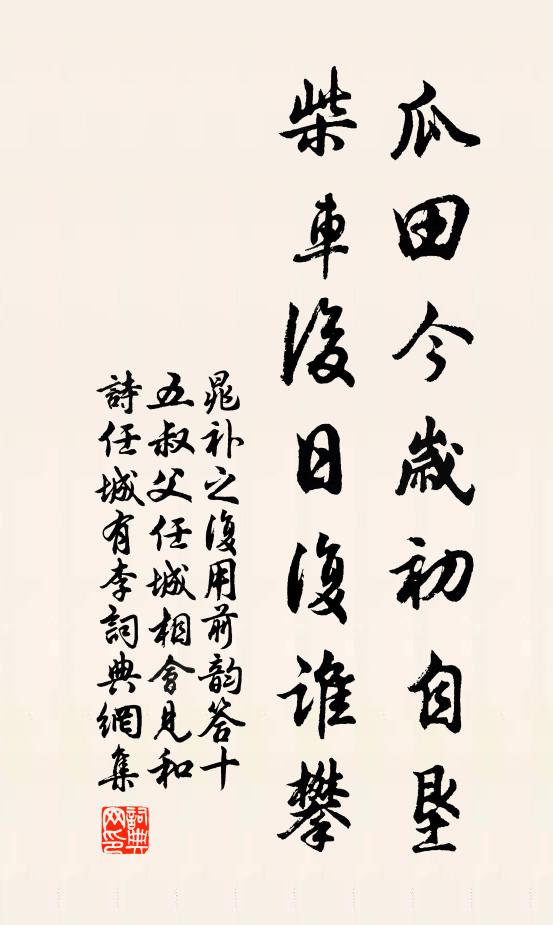 瓜田今歲初自垦
柴車後日復誰攀
晁补之復用前韵答十
五叔父任城相會見和
詩任城有李詞典網集
詞典
网印